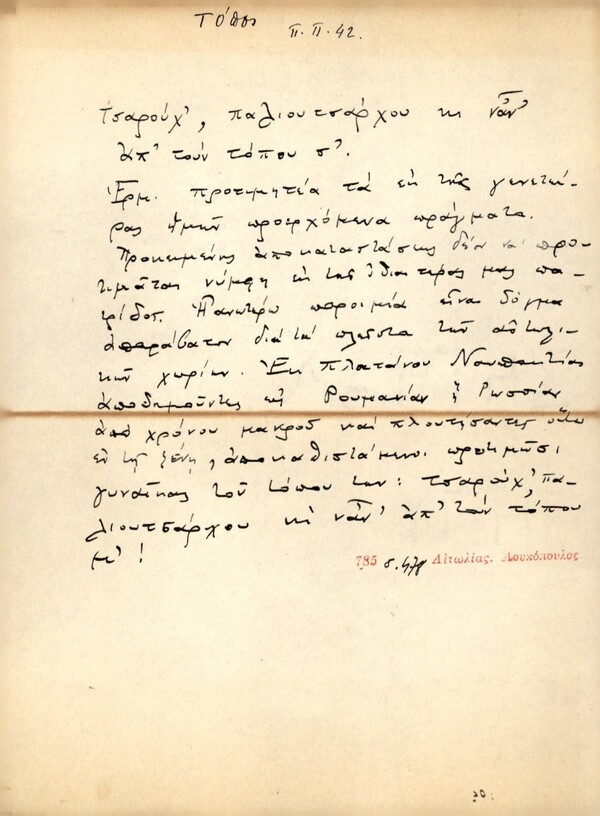 Τόπος
Π.Π.42.
Τσαρούχ', παλιουτσάρχου κι νἆν'
ἀπ' τοὺν τόπου σ'.
Ἑρμ. προτιμητέα τὰ ἐκ τῆς γενετεί-
ρας ἡμῶν προερχόμενα πράγματα.
Προκειμένης ἀποκαταστάσεως δέον νὰ προ-
τιμᾶται νύμφη ἐκ τῆς ἰδιαιτέρας μας πα-
τρίδος. Ἡ ἀνωτέρω παροιμία εἶναι δόγμα
ἀπαράβατον διὰ τὰ πλεῖστα τῶν αἰτωλι-
κῶν χωρίων. Ἐκ Πλατάνου Ναυπακτίας
ἀποδημοῦντες εἰς Ρουμανίαν ἢ Ρωσσίαν
ἀπὸ χρόνου μακροῦ καὶ πλουτήσαντες
ἐν τῇ ξένῃ, ἀποκαθιστάμενοι προτιμῶσι
γυναῖκας τοῦ τόπου των: τσαρούχ' πα-
λιουτσάρχου κι νἆν' ἀπ' τοὺν τόπου
μ'!
785 σ. 478 Αἰτωλίας. Λουκόπουλος